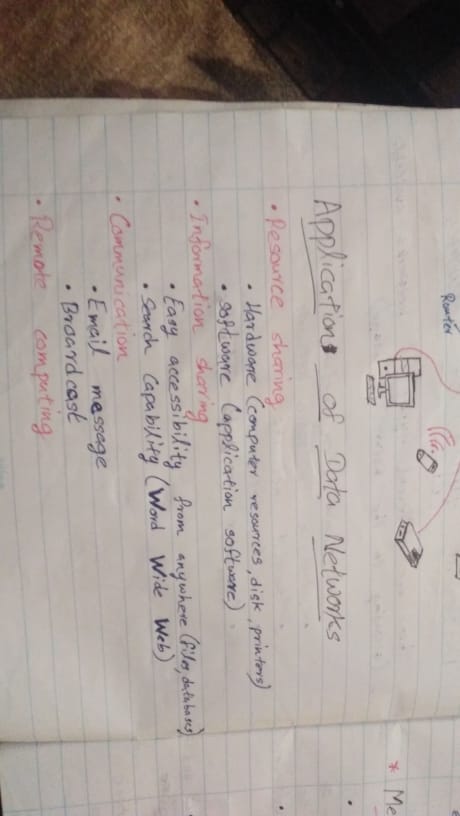 Router
Applications of Data Networks
• Resource sharing
• Hardware (computer resources, disk, printers)
• software (application software)
• Information sharing
• Easy accessibility from anywhere (files, databases)
• Search Capability (Word Wide Web)
• Communication
• Email message
• Broardcast
• Remote computing
* Me